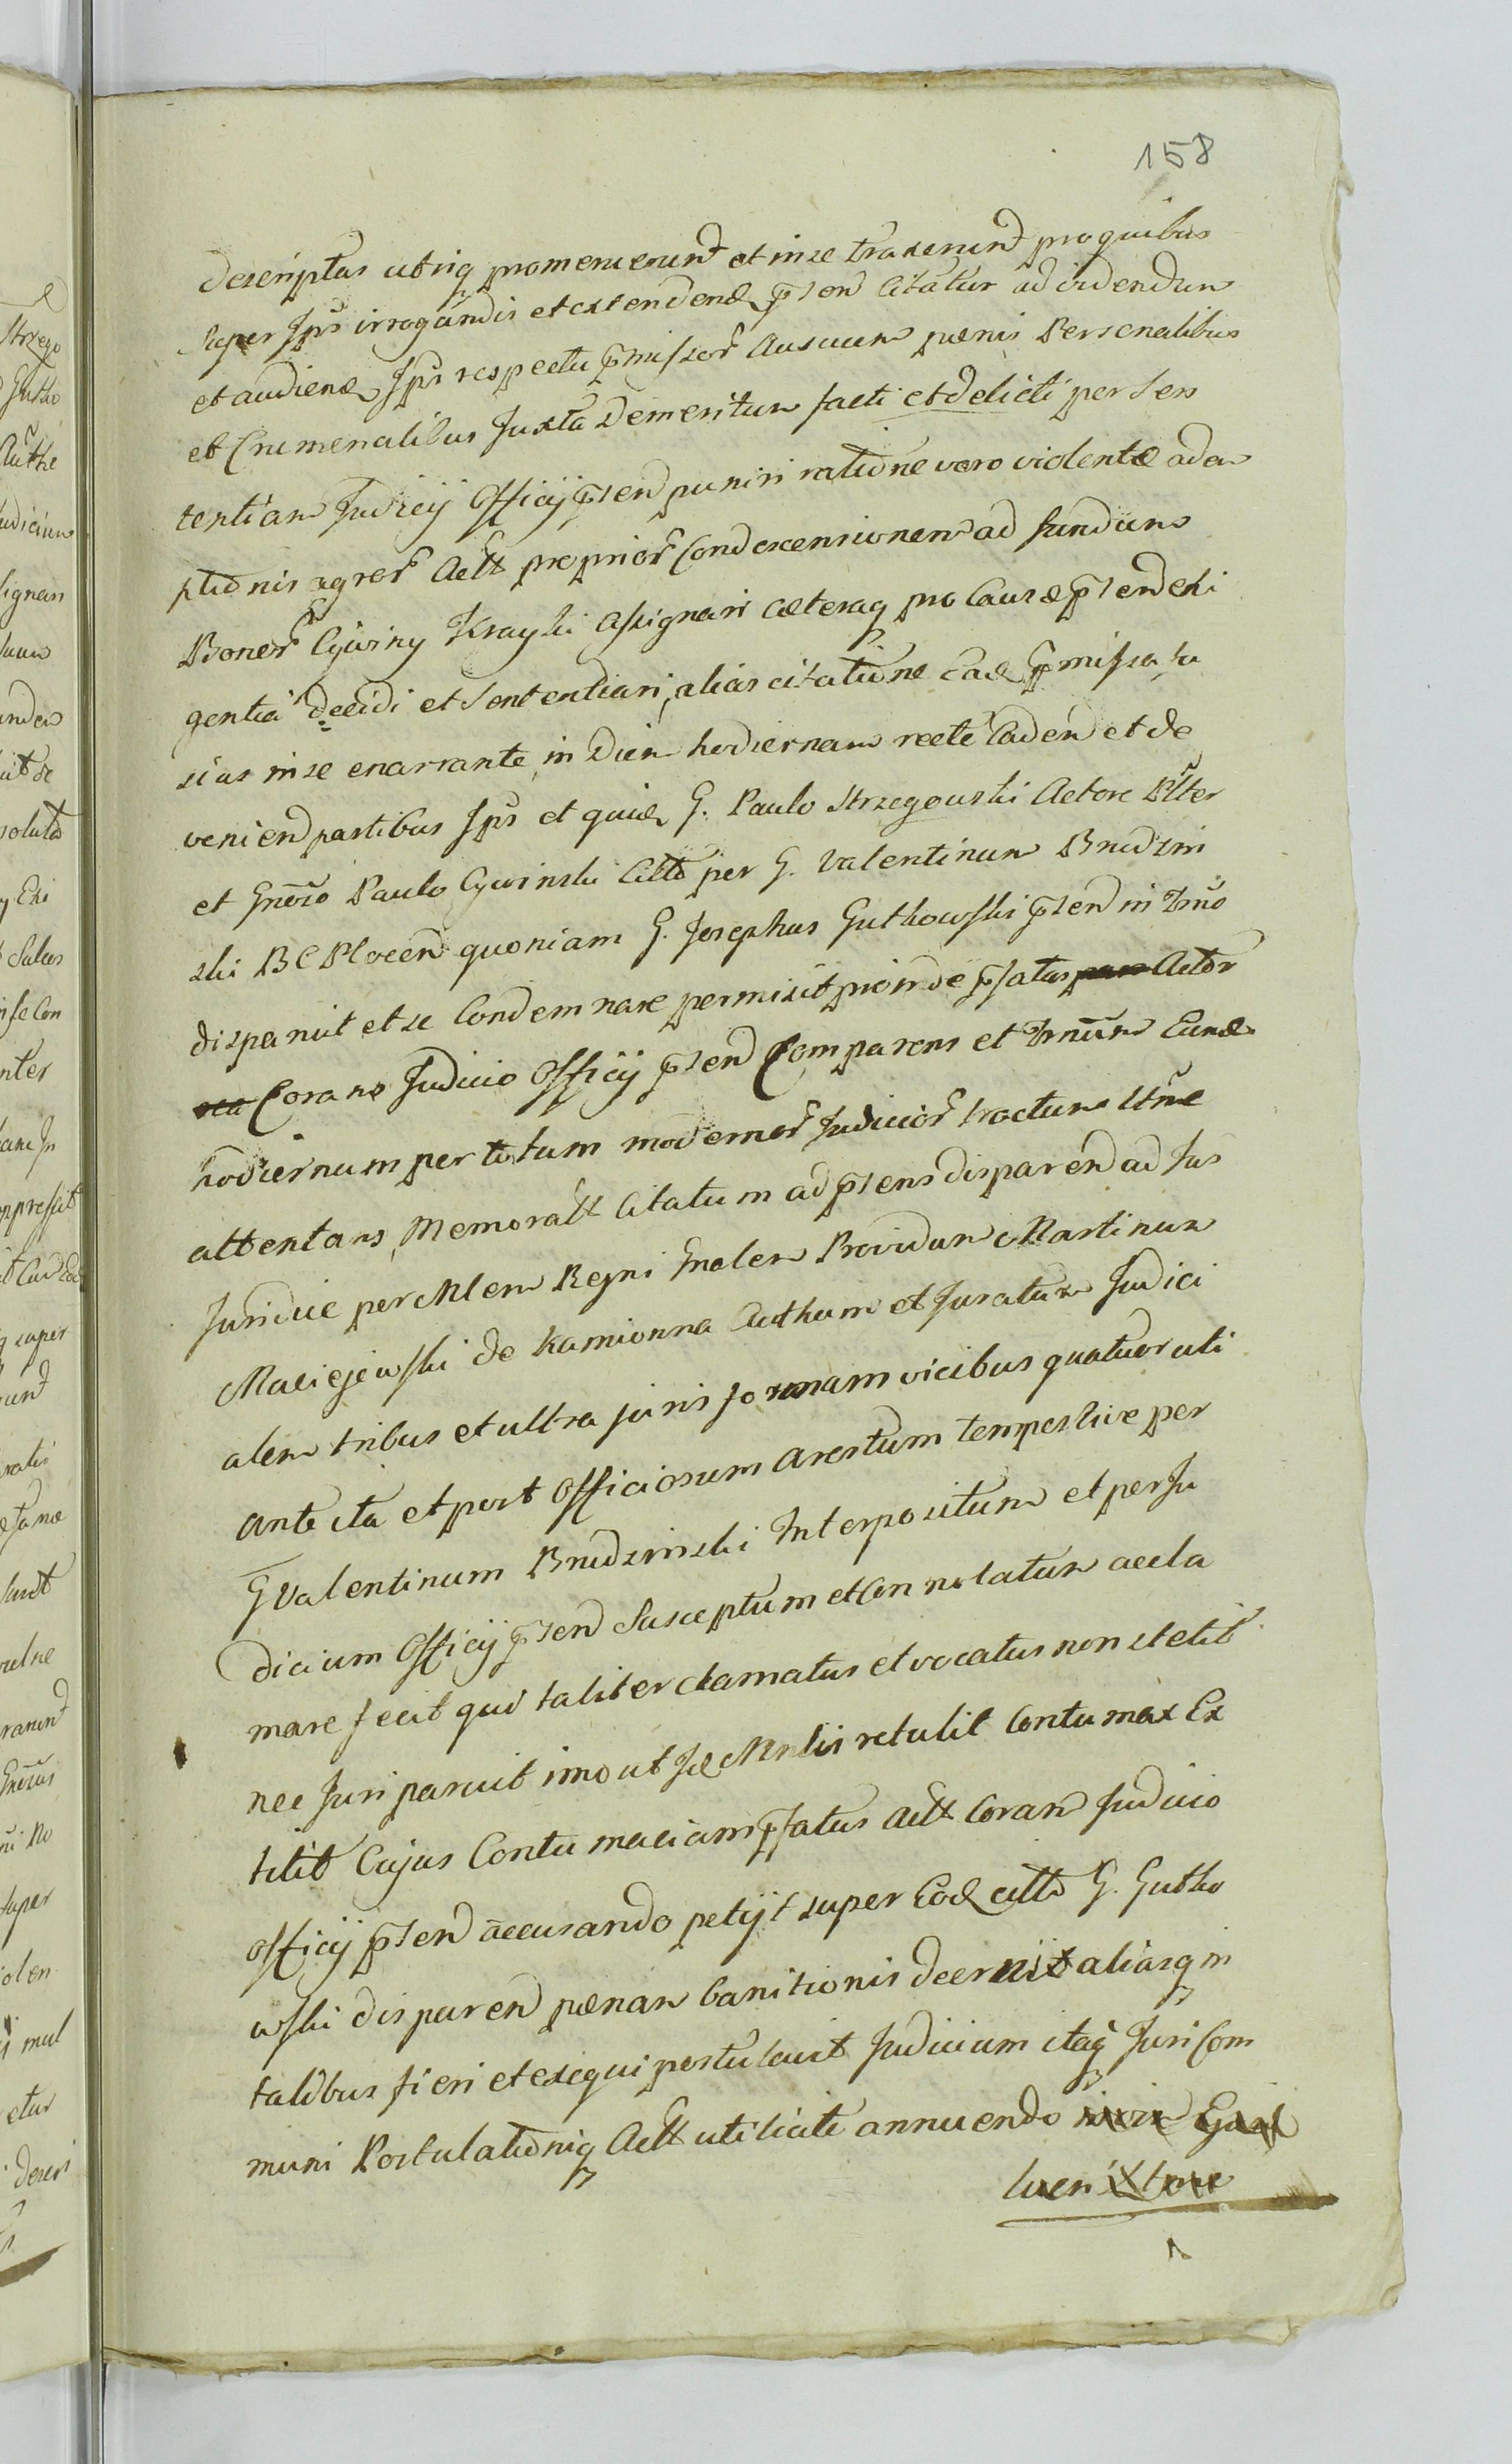 158
descriptas utiq promeruerunt et in se traxerunt pro quibus
super Ips irrogandis et extendend psen Citatur ad videndum
et audiend Ips respectu pmissor Ausuum pænis Personalibus
et Crumenalibus Juxta Demeritum facti et delicti per Sen
tentiam Judicij Officij psen puniri ratione vero violentæ adem
ptionis agror Actt proprior Condescensionem ad fundum
Bonor Cywiny Krayki Assignari cæteraq pro Causæ psen exi
gentia decidi et Sententiari, alias citatione ead pmissa, fu
sius in se enarrante, in Diem hodiernam recte Caden et de
venien partibus Ips et quid G. Paulo Strzegowski Actore Plter
et Gnoso Paulo Cywinski Citto per G. Valentinum Brudzin
ski BC Plocen quoniam G. Josephus Gutkowski psen in Trno
disparuit et se Condemnare permisit proinde pfatus Actor
Coram Judicio Officij psen Comparens et Trnum Eund
hodiernum per totum modernor Judicior tractum Ltme
attentans, Memoratt Citatum ad psens disparen ad Jus
Juridice per Mlem Regni Gnalem Providum Martinum
Maciejewski de Kamionna Authum et Juratum Judici
alem tribus et ultra juris formam vicibus quatuor uti
ante ita et post Officiosum arestum tempestive per
G Valentinum Brudzinski Interpositum et per Ju
dicium Officij psen Susceptum et Connotatum accla
mare fecit qui taliter clamatus et vocatus non stetit
nec Juri paruit imo ut Id Mnlis retulit Contumax Ex
titit Cujus Contumaciam pfatus Actt Coram Judicio
Officij psen accusando petijt super Eod citto G. Gutko
wski disparen pænam banitionis decerni aliasq in
talibus fieri et exequi postulavit Judicium itaq Juri Com
muni Postulationiq Actt utiliate annuendo